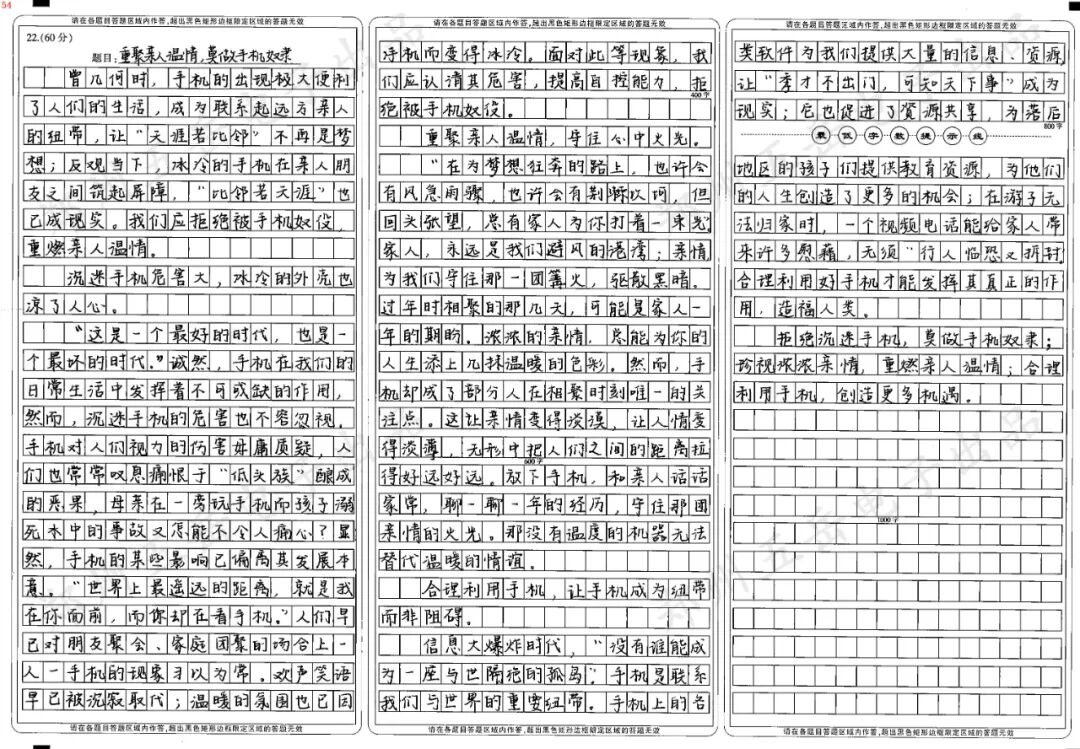 54
请在各题目答题区域内作答,超出黑色矩形边框限定区域的答题无效
22.(60分)
题目:重聚亲人温情,莫做手机奴隶
曾几何时,手机的出现极大便利
了人们的生活,成为联系起远方亲人
的纽带,让“天涯若比邻”不再是梦
想;反观当下,冰冷的手机在亲人朋
友之间筑起屏障,“比邻若天涯”也
已成现实。我们应拒绝被手机奴役,
重燃亲人温情。
沉迷手机危害大,冰冷的外壳也
凉了人心。
“这是一个最好的时代,也是一
个最坏的时代。”诚然,手机在我们的
日常生活中发挥着不可或缺的作用,
然而,沉迷手机的危害也不容忽视。
手机对人们视力的伤害毋庸质疑,人
们也常常叹息痛恨于“低头族”酿成
的恶果,母亲在一旁玩手机而孩子溺
死水中的事故又怎能不令人痛心?显
然,手机的某些影响已偏离其发展本
意。“世界上最遥远的距离,就是我
在你面前,而你却在看手机。”人们早
已对朋友聚会、家庭团聚的场合上一
人一手机的现象习以为常。欢声笑语
早已被沉寂取代;温暖的氛围也已因
请在各题目答题区域内作答,超出黑色矩形边框限定区域的答题无效
请在各题目答题区域内作答,超出黑色矩形边框限定区域的答题无效
手机而变得冰冷。面对此等现象,我
们应认清其危害,提高自控能力,拒
400字
绝被手机奴役。
重聚亲人温情,守住心中火光。
“在为梦想狂奔的路上,也许会
有风急雨骤,也许会有荆棘坎坷,但
回头张望,总有家人为你打着一束光”
家人,永远是我们避风的港湾;亲情
为我们守住那一团篝火,驱散黑暗。
过年时相聚的那几天,可能是家人一
年的期盼。浓浓的亲情,总能为你的
人生添上几抹温暖的色彩。然而,手
机却成了部分人在相聚时刻唯一的关
注点。这让亲情变得淡漠,让人情变
得淡薄,无形中把人们之间的距离拉
600字
得好远好远。放下手机,和亲人话话
家常,聊一聊一年的经历,守住那团
亲情的火光。那没有温度的机器无法
替代温暖的情谊。
合理利用手机,让手机成为纽带
而非阻碍。
信息大爆炸时代,“没有谁能成
为一座与世隔绝的孤岛”,手机是联系
我们与世界的重要纽带。手机上的各
请在各题目答题区域内作答,超出黑色矩形边框限定区域的答题无效
请在各题目答题区域内作答,超出黑色矩形边框限定区域的答题无效
类软件为我们提供大量的信息、资源
让“李才不出门,可知天下事”成为
现实;它也促进了资源共享,为落后
800字
最低字数提示线
地区的孩子们提供教育资源,为他们
的人生创造了更多的机会;在游子无
法归家时,一个视频电话能给家人带
来许多慰藉,无须“行人临恐又拆封”
合理利用好手机才能发挥其真正的作
用,造福人类。
拒绝沉迷手机,莫做手机奴隶;
珍视浓浓亲情,重燃亲人温情;合理
利用手机,创造更多机遇。
1000字
请在各题目答题区域内作答,超出黑色矩形边框限定区域的答题无效